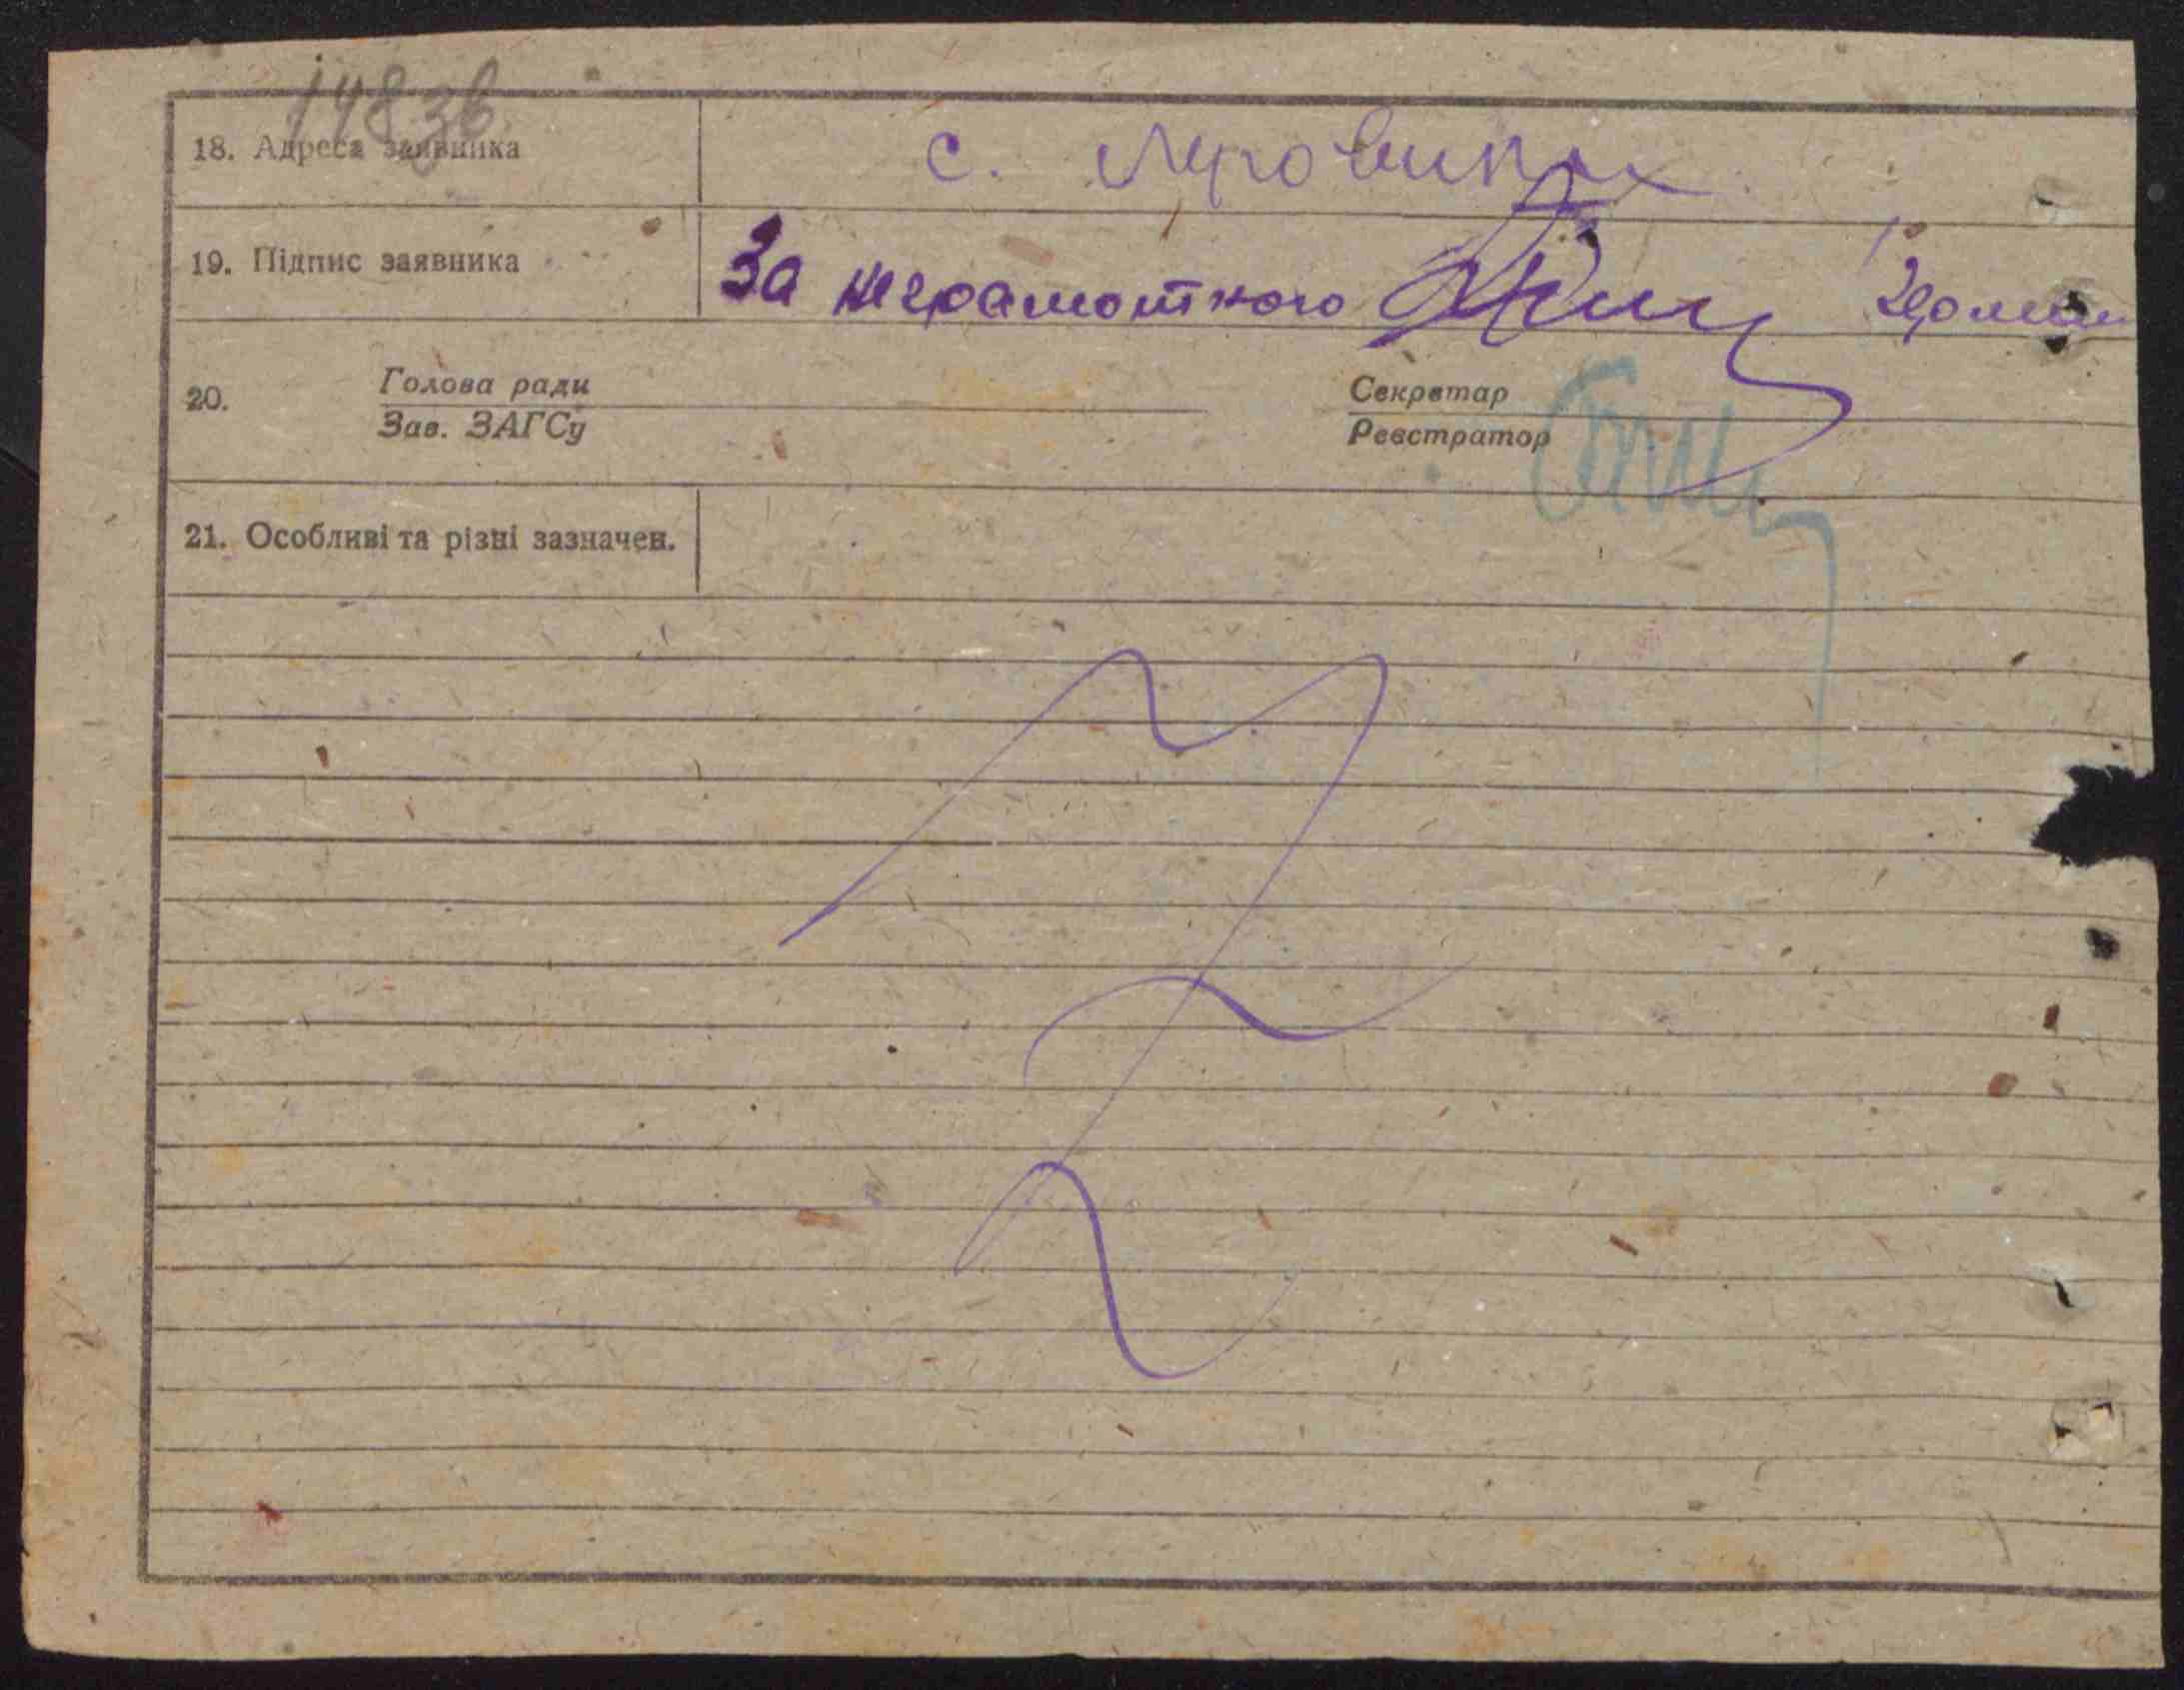 18. Адреса заявника с. Луговиках
19. Підпис заявника За неграмотного
20. Голова ради Секретар
Зав. ЗАГСу Реєстратор
21. Особливі та різні зазначен.